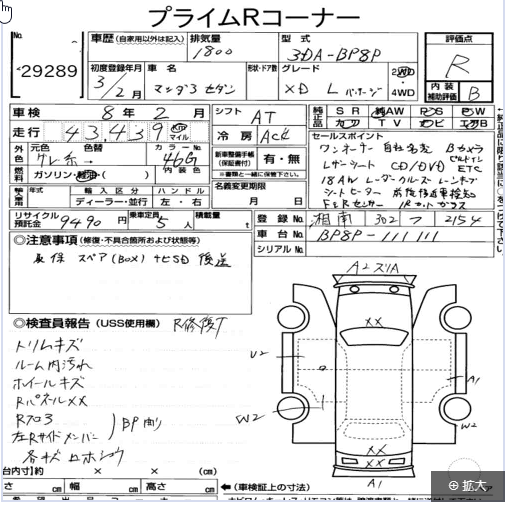 プライムRコーナー
No.
29289
車歴 (自家用以外は記入)
排気量
1800
型式
3DA-BP8P
評価点
R
初度登録年月
3/2月
車名
マツダ3 セダン
形状・ドア数
グレード
XD L パッケージ
2WD
4WD
内装補助評価
B
車検 8年 2月
走行 43439 km マイル
シフト AT
冷房 AAC
純正品 SR AW PS PW
カワ TV ナビ エアB
外色 元色 グレー系
色替
カラーNo. 46G
内装色
燃料 ガソリン・軽油・( )
新車整備手帳(保証書付) 有・無
※書類と一緒に保管下さい。
名義変更期限 月 日
輸入車用 年式
輸入区分 ディーラー・並行
ハンドル 左・右
リサイクル預託金 9490円
乗車定員 5人
積載量 t
セールスポイント
ワンオーナー 自社名変 Bカメラ
レザーシート CD/DVD ビルトインETC
18AW レーダークルーズ
シートヒーター
F&Rセンサー
登録No. 湘南 302 フ 2154
車台No. BP8P-111111
シリアルNo.
◎注意事項 (修復・不具合箇所および状態等)
スペア(BOX) ナビSD 後送
◎検査員報告 (USS使用欄) R修復T
トリムキズ
ルーム内汚れ
ホイールキズ
RパネルXX
Rフロ3
左Rサイドメンバー
BP削
A2 スリA
XX
U2
W2
A1
W2
XX
XX
A1
台内寸】約 × × (cm)
さ cm 幅 cm 高さ cm
←(車検証上の寸法)
拡大